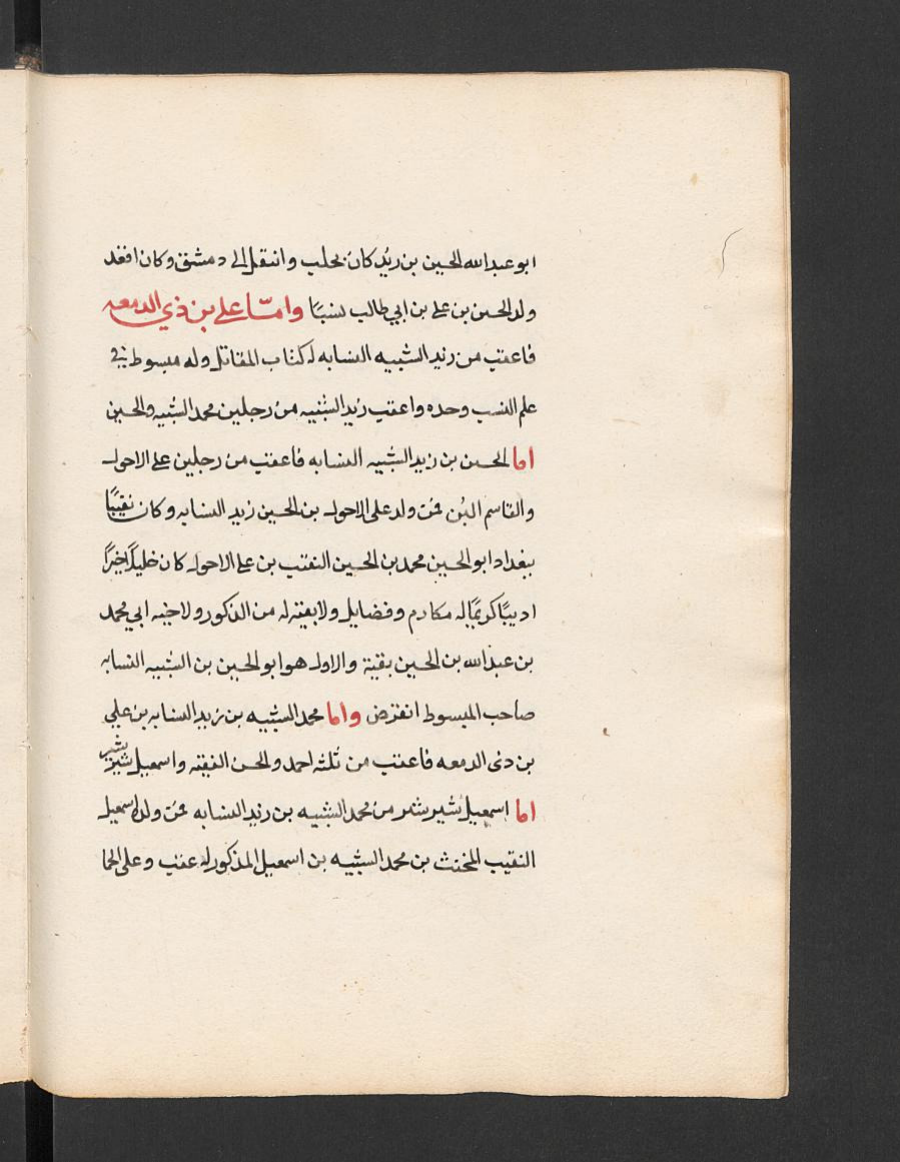 ابو عبدالله الحسين بن زيد كان بحلب وانتقل الى دمشق وكان اقعد
ولد الحسن بن على بن ابي طالب نسبًا وامّا على بن ذي الدمعه
فاعقب من زيد الشبيه النسابه له كتاب المقاتل وله مبسوط في
علم النسب وحده واعقب زيد الشبيه من رجلين محمد الشبيه والحسين
اما الحسين بن زيد الشبيه النسابه فاعقب من رجلين على الاحول
والقاسم فمن ولد على الاحول بن الحسين زيد النسابه وكان نقيبًا
ببغداد ابو الحسين محمد بن الحسين النقيب بن على الاحول كان خليلًا خيرًا
اديبًا كريمًا له مكارم وفضايل ولا بقيه له من الذكور ولاخيه ابي محمد
بن عبدالله بن الحسين بقية والاول هو ابو الحسين بن الشبيه النسابه
صاحب المبسوط انقرض واما محمد الشبيه بن زيد النسابه بن علي
بن ذى الدمعه فاعقب من ثلثه احمد والحسن الفقيه واسمعيل
اما اسمعيل من محمد الشبيه بن زيد النسابه فمن ولده اسمعيل
النقيب المخنث بن محمد الشبيه بن اسمعيل المذكور له عقب وعلى الحما